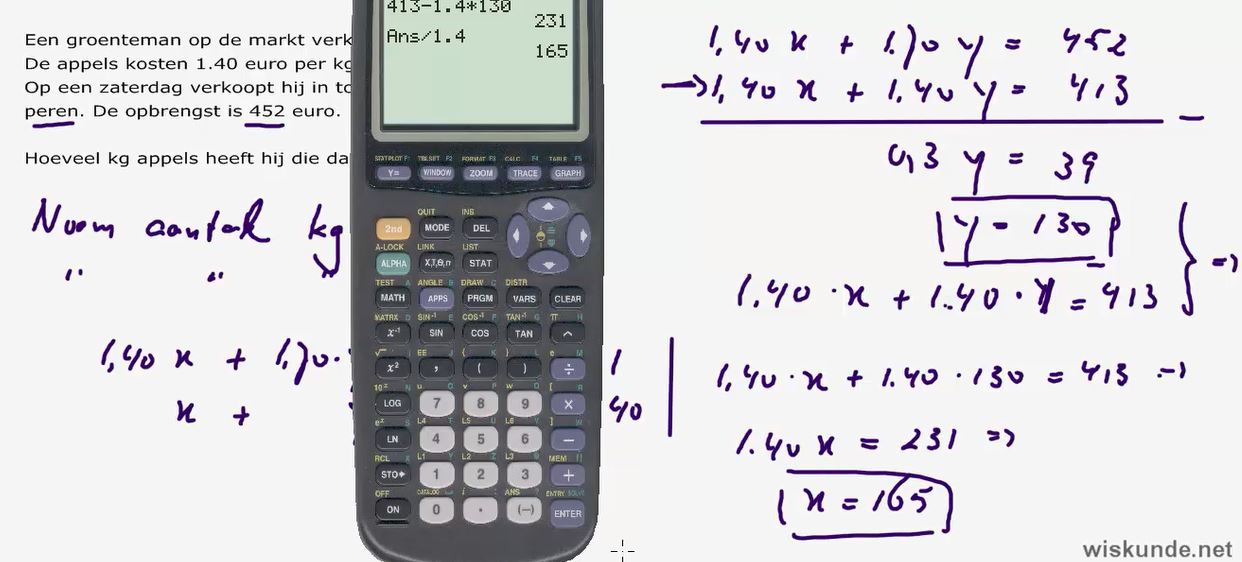 Een groenteman op de markt verk
De appels kosten 1.40 euro per kg
Op een zaterdag verkoopt hij in to
peren. De opbrengst is 452 euro.
Hoeveel kg appels heeft hij die da
Noem aantal kg
" "
1,40 x + 1,70 ·
x +
1
40
413-1.4*130
231
Ans/1.4
165
STAT PLOT F1 TBLSET F2 FORMAT F3 CALC F4 TABLE F5
Y= WINDOW ZOOM TRACE GRAPH
QUIT INS
2nd MODE DEL
A-LOCK LINK LIST
ALPHA X,T,θ,n STAT
TEST A ANGLE B DRAW C DISTR
MATH APPS PRGM VARS CLEAR
MATRX D SIN⁻¹ E COS⁻¹ F TAN⁻¹ G π H
x⁻¹ SIN COS TAN ^
√ I EE J { K } L e M
x² , ( ) ÷
10ˣ N u O v P w Q [ R
LOG 7 8 9 ×
eˣ S L4 T L5 U L6 V ] W
LN 4 5 6 −
RCL X L1 Y L2 Z L3 θ MEM "
STO➔ 1 2 3 +
OFF CATALOG ⎵ i : ANS ? ENTRY SOLVE
ON 0 . (−) ENTER
1,40 x + 1.70 y = 452
→ 1,40 x + 1.40 y = 413
−
0,3 y = 39
y = 130
1.40 · x + 1.40 · y = 413 } ⇒
1,40 · x + 1.40 · 130 = 413 ⇒
1.40 x = 231 ⇒
x = 165
wiskunde.net